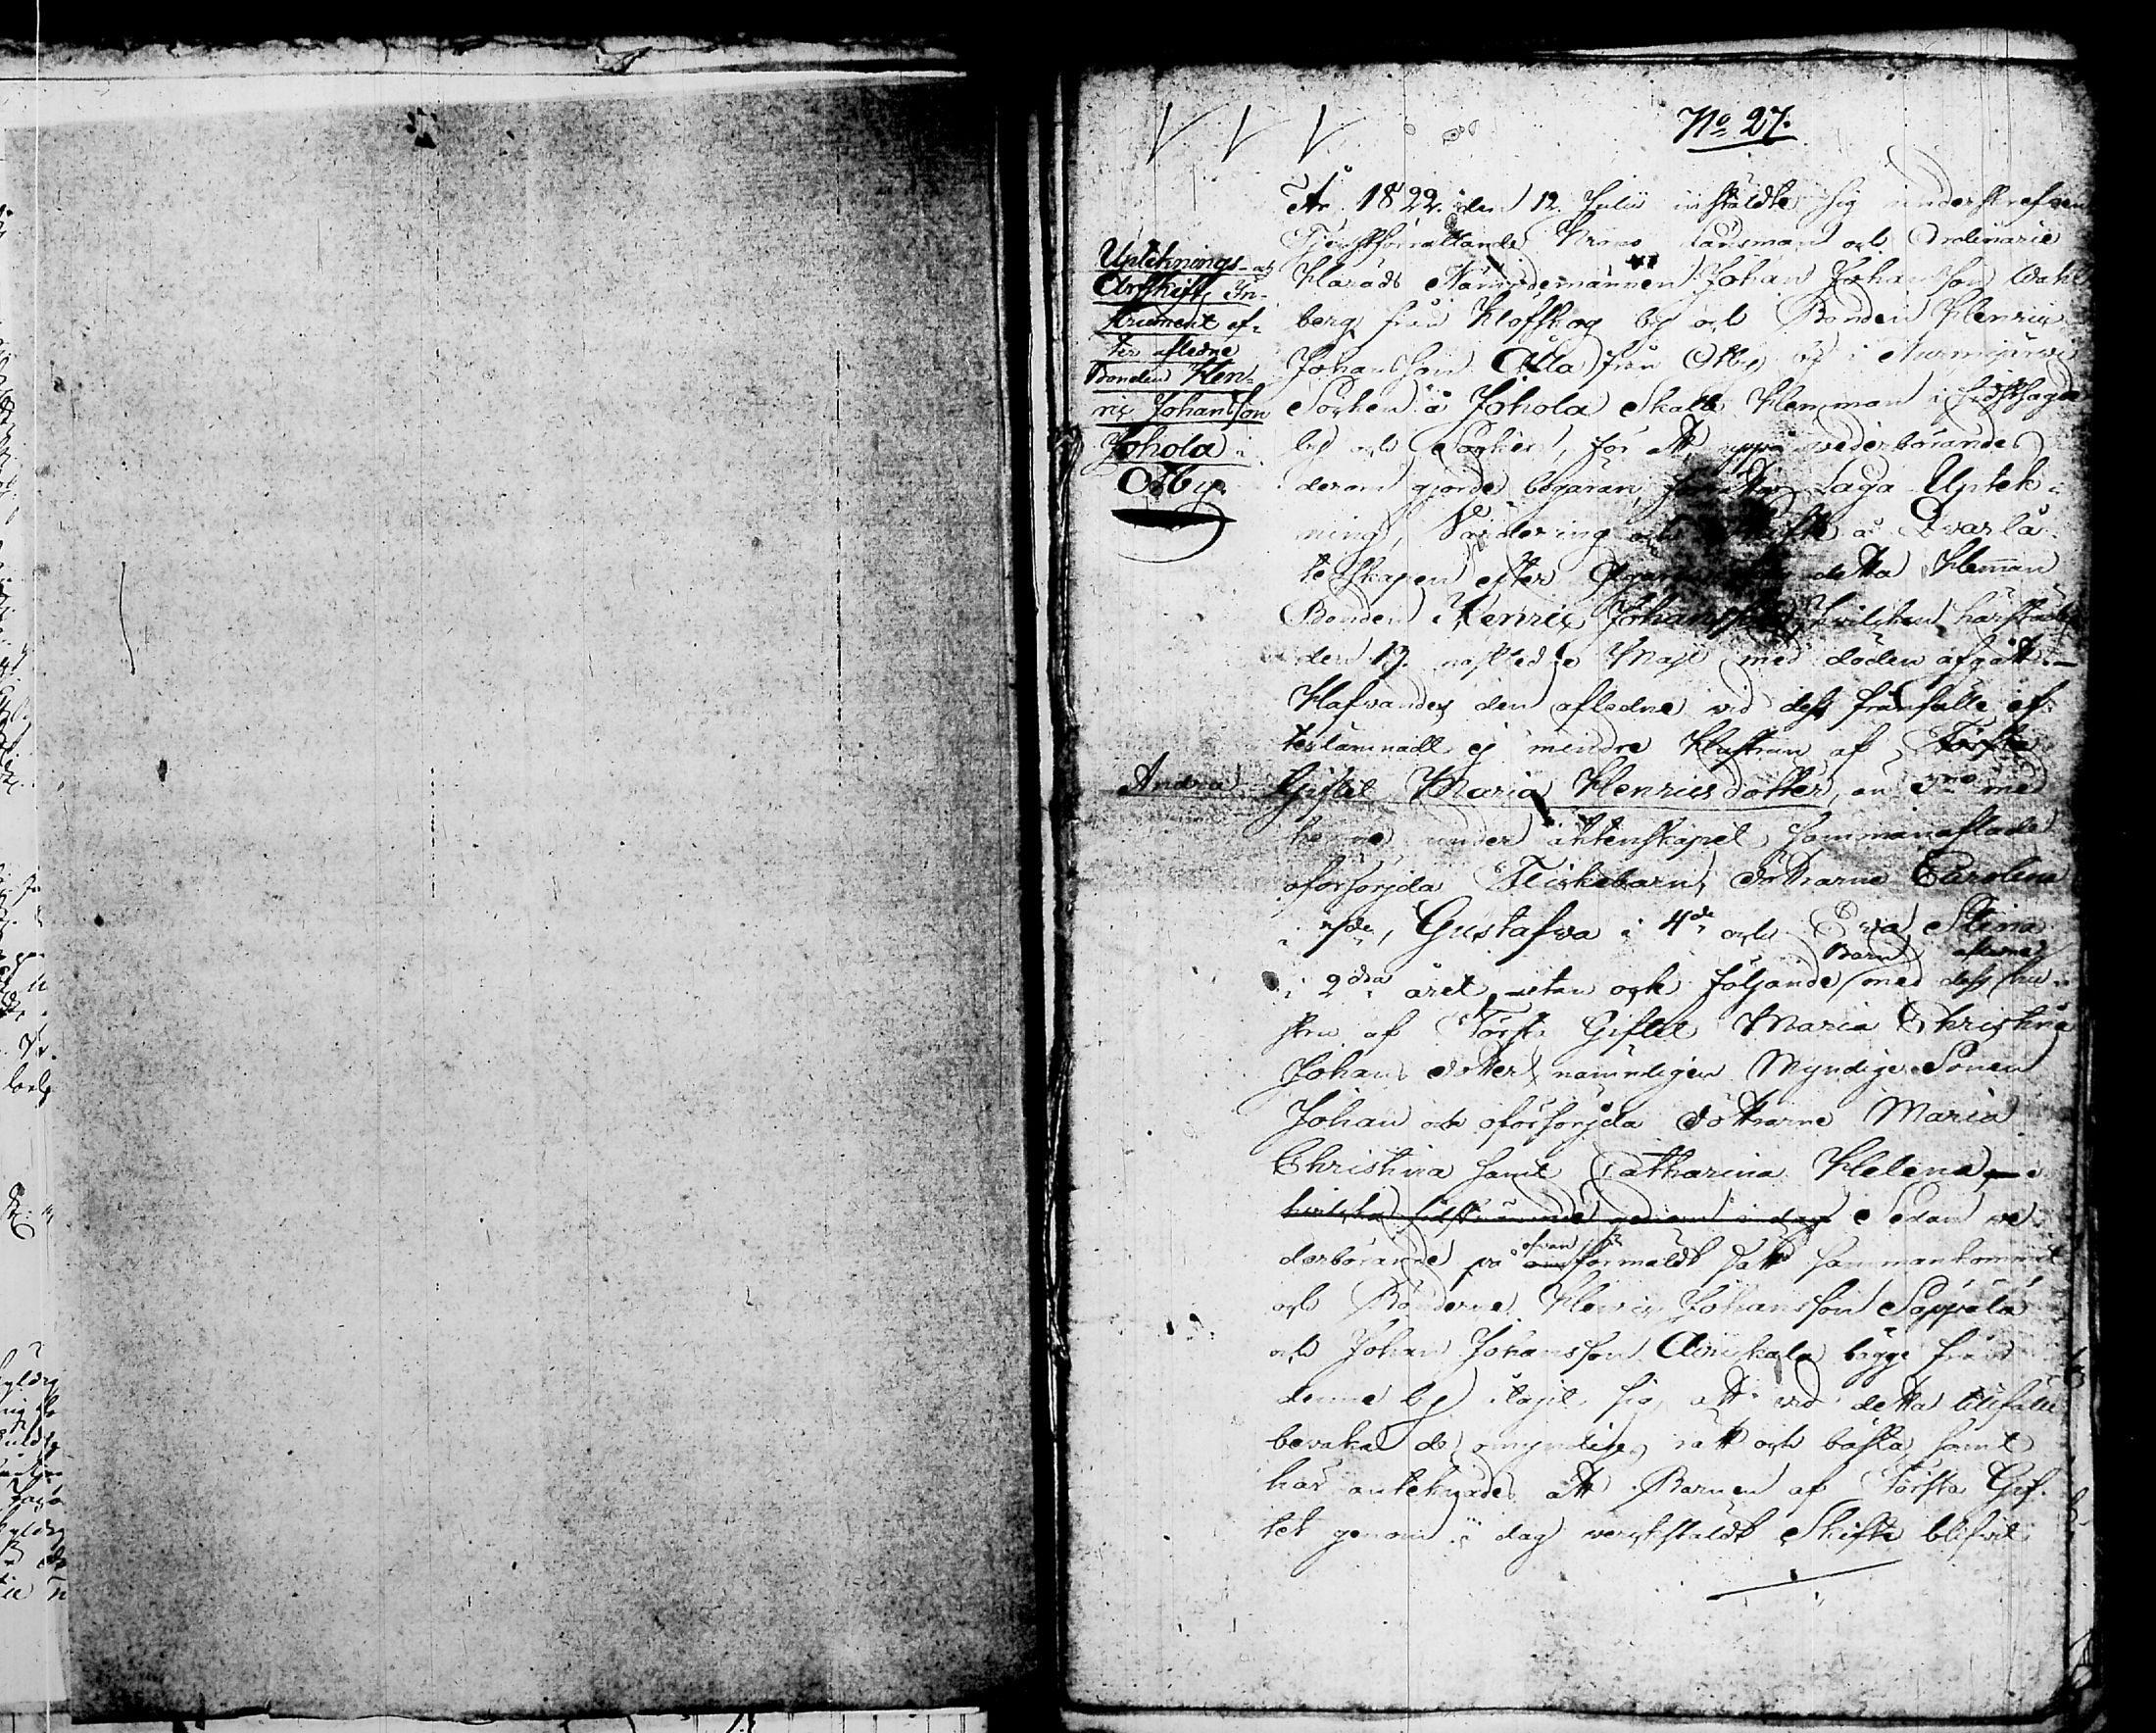 No 27.
År 1822. den 12 Julii instäldte sig underskrefven
Tjenstförrättande Krono Länsman och Ordinarie
Härads Nämndemannen Johan Johansson Wahl
berg från Klofskog by och Bonden Henric
Johansson Otila från Otby by i Nurmijärvi
Socken å Johola Skatte Hemman i
by och Socken, för att uppå vederbörandes
derom gjorde begäran, förrätta Laga Uptek-
ning, Värdering och Skifte å Qvarlå-
tenskapen efter detta Hemman
Bonden Henric Johansson, hvilken härstädes
den 19 nästledne Maji med döden afgått.—
Hafvandes den afledne vid dess frånfälle ef-
terlämnadt ej mindre Hustrun af Första
Giftet Maria Henricsdotter, än 3ne med
henne under äktenskapet sammanaflade
oförsörjda Flickebarn, Döttrarne Carolina
i 7de, Gustafva i 4de och Eva Stina
i 2dra året, utan ock följande Barn med dess afledne hu-
stru af Första Giftet Maria Christina
Johans dotter, nämnligen Myndige Sonen
Johan och oförsörjda Döttrarne Maria
Christina samt Catharina Helena,
hvilka sistnämnde genom i dag Sedan ve-
derbörande på ofvan förmäldt sätt sammankommit
och Bönderne Henric Johansson Seppälä
och Johan Johansson Ainikala bägge från
denne by åtagit sig att vid detta tillfälle
bevaka de omyndiges rätt och bästa, samt
här anteknades att Barnen af Första Gif-
tet genom i dag verkstäldt Skifte blifvit
Upteknings- och
Arfskifts In-
strument ef-
ter afledne
Bonden Hen-
ric Johansson
Johola i
Otby.
Andra